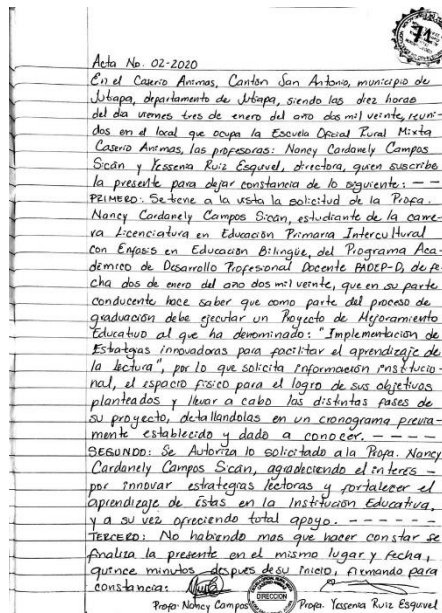 71
Acta No. 02-2020
En el Caserío Animas, Cantón San Antonio, municipio de
Jutiapa, departamento de Jutiapa, siendo las diez horas
del día viernes tres de enero del año dos mil veinte, reuni-
dos en el local que ocupa la Escuela Oficial Rural Mixta
Caserío Animas, las profesoras: Nancy Cardanely Campos
Sicán y Yessenia Ruiz Esquivel, directora, quien suscribe
la presente para dejar constancia de lo siguiente: — —
PRIMERO: Se tiene a la vista la solicitud de la Profa.
Nancy Cardanely Campos Sicán, estudiante de la carre-
ra Licenciatura en Educación Primaria Intercultural
con Énfasis en Educación Bilingüe, del Programa Aca-
démico de Desarrollo Profesional Docente PADEP-D, de fe-
cha dos de enero del año dos mil veinte, que en su parte
conducente hace saber que como parte del proceso de
graduación debe ejecutar un Proyecto de Mejoramiento
Educativo al que ha denominado: "Implementación de
Estrategas innovadoras para facilitar el aprendizaje de
la lectura", por lo que solicita información institucio-
nal, el espacio físico para el logro de sus objetivos
planteados y llevar a cabo las distintas fases de
su proyecto, detallándolas en un cronograma previa-
mente establecido y dado a conocer. — — — —
SEGUNDO: Se Autoriza lo solicitado a la Profa. Nancy
Cardanely Campos Sicán, agradeciendo el interés —
por innovar estrategias lectoras y fortalecer el
aprendizaje de éstas en la Institución Educativa,
y a su vez ofreciendo total apoyo. — — — — — —
TERCERO: No habiendo mas que hacer constar se
finaliza la presente en el mismo lugar y fecha,
quince minutos despues de su inicio, firmando para
constancia:
DIRECCION
Profa. Nancy Campos Profa. Yessenia Ruiz Esquivel